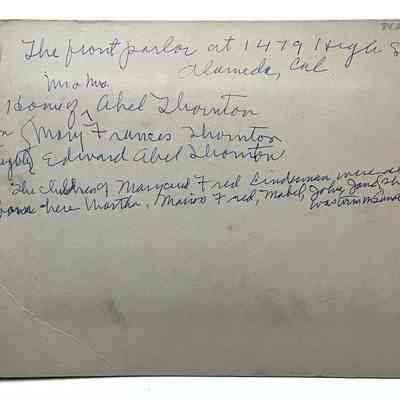 The front parlor at 1479 High S
Alameda, Cal
Mr & Mrs
Home of ^ Abel Thornton
n { Mary Frances Thornton
Edward Abel Thornton
The children of Mary and Fred Linderman were all
born here Martha, Marion Fred, Mabel, John,
was